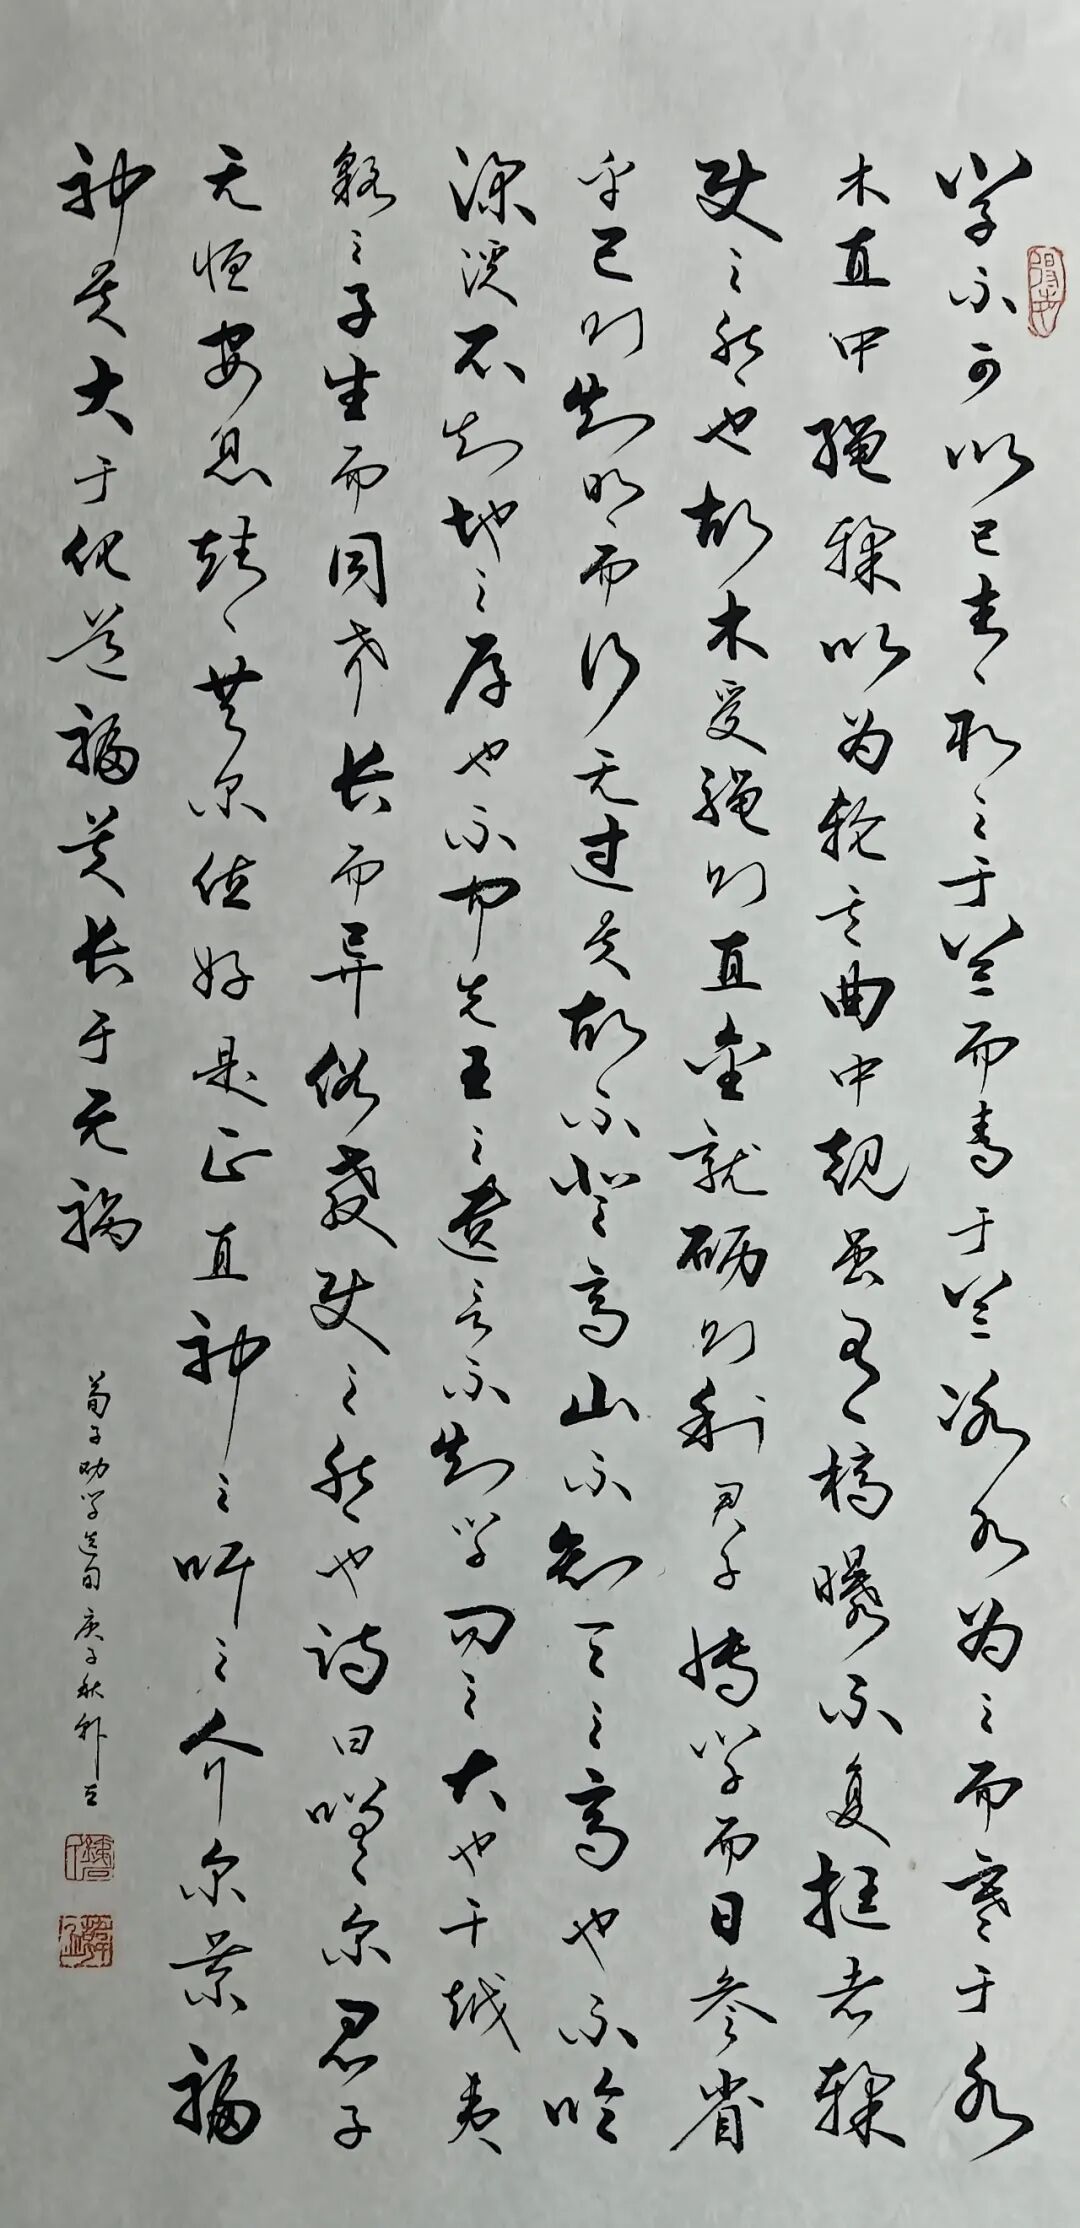 学不可以已青、取之于兰而青于兰冰水为之而寒于水
木直中绳輮以为轮其曲中规虽有、槁曝不复挺者輮
使之然也故木受绳则直金就砺则利君子博学而日参省
乎己则知明而行无过矣故不登高山不知天之高也不临
深溪不知地之厚也不闻先王之遗言不知学问之大也干越夷
貉之子生而同声长而异俗教使之然也诗曰嗟、尔君子
无恒安息靖、共尔位好是正直神之听之介尔景福
神莫大于化道福莫长于无祸
荀子劝学造句庚子秋